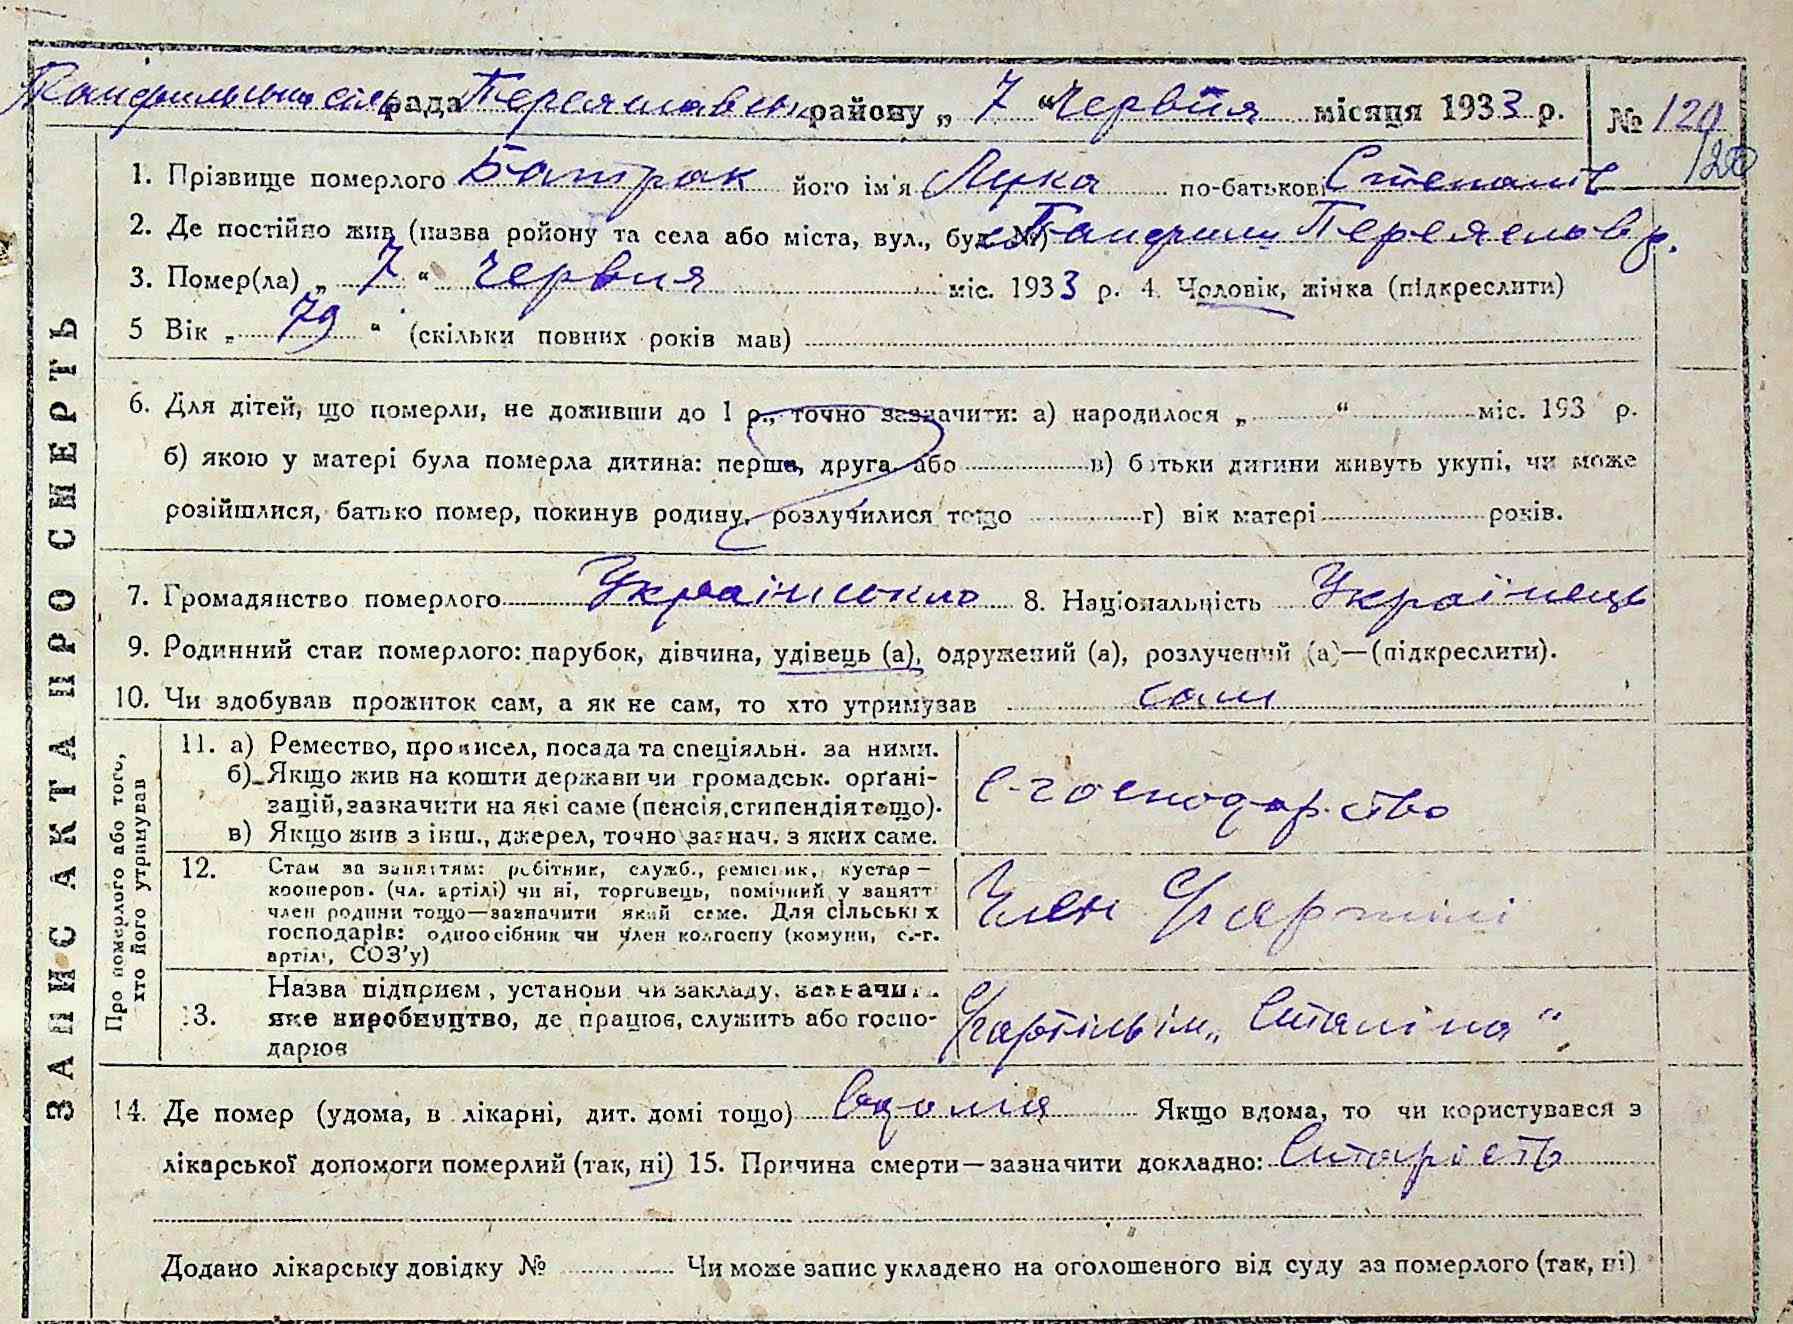 Панфильська сільрада Переяславськ району „ 7 “ Червня місяця 1933 р. № 120
120
1. Прізвище померлого Батрак його ім'я Лука по-батькові Степанів
2. Де постійно жив (назва ройону та села або міста, вул., буд. №) Панфили Переяславр.
3. Помер(ла) „ 7 “ Червня міс. 1933 р. 4. Чоловік, жінка (підкреслити)
5 Вік „ 79 “ (скільки повних років мав)
6. Для дітей, що померли, не доживши до 1 р., точно зазначити: а) народилося „ “ міс. 193 р.
б) якою у матері була померла дитина: перша, друга або в) батьки дитини живуть укупі, чи може
розійшлися, батько помер, покинув родину, розлучилися тощо г) вік матері років.
7. Громадянство померлого Українське 8. Національність Українець
9. Родинний стан померлого: парубок, дівчина, удівець (а), одружений (а), розлучений (а)—(підкреслити).
10. Чи здобував прожиток сам, а як не сам, то хто утримував сам
ЗАПИС АКТА ПРО СМЕРТЬ
Про померлого або того,
хто його утримував
11. а) Ремество, промисел, посада та спеціяльн. за ними.
б) Якщо жив на кошти держави чи громадськ. орґані-
зацій, зазначити на які саме (пенсія, стипендія тощо).
в) Якщо жив з інш., джерел, точно зазнач. з яких саме.
с-господарство
12. Стан за заняттям: робітник, служб., ремісник, кустар—
кооперов. (чл. артілі) чи ні, торговець, помічний у занятт
член родини тощо—зазначити який саме. Для сільських
господарів: одноосібник чи член колгоспу (комуни, с.-г.
артілі, СОЗ'у)
Член С/г артілі
13. Назва підприєм, установи чи закладу, зазначит.
яке виробництво, де працює, служить або госпо-
дарює
С/г артіль ім „ Сталіна “
14. Де помер (удома, в лікарні, дит. домі тощо) Вдома Якщо вдома, то чи користувався з
лікарської допомоги померлий (так, ні) 15. Причина смерти—зазначити докладно: Старість
Додано лікарську довідку № Чи може запис укладено на оголошеного від суду за померлого (так, ні)